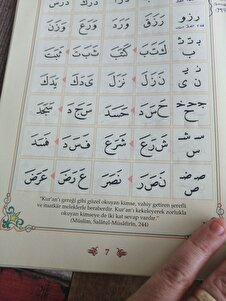 رزو رَزَقَ وَرَدَ وَزَرَ وَزَنَ
ب ت ث كَتَبَ كَتَبَ ثَبَتَ
ن ي نَزَلَ نَزَلَ يَدَكَ
ج ح خ حَسَدَ حَسَدَ سَجَدَ سَجَدَ
س ش شَرَعَ شَرَعَ فَسَدَ فَسَدَ
ص ض نَصَرَ نَصَرَ عَرَضَ عَرَضَ
"Kur'an'ı gereği gibi güzel okuyan kimse, vahiy getiren şerefli
ve itaatkâr meleklerle beraberdir. Kur'an'ı kekeleyerek zorlukla
okuyan kimseye de iki kat sevap vardır."
(Müslim, Salâtü'l-Müsâfirîn, 244)
7